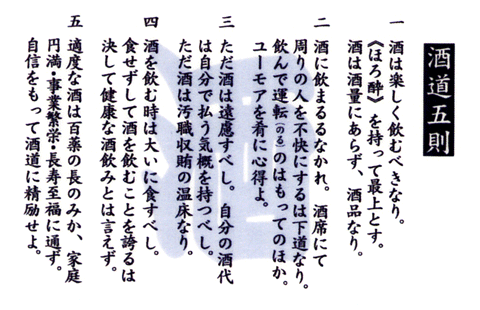 酒道五則
一 酒は楽しく飲むべきなり。
《ほろ酔》を持って最上とす。
酒は酒量にあらず、酒品なり。
二 酒に飲まるるなかれ。酒席にて
周りの人を不快にするは下道なり。
飲んで運転(のる)のはもってのほか。
ユーモアを肴に心得よ。
三 ただ酒は遠慮すべし。自分の酒代
は自分で払う気概を持つべし。
ただ酒は汚職収賄の温床なり。
四 酒を飲む時は大いに食すべし。
食せずして酒を飲むことを誇るは
決して健康な酒飲みとは言えず。
五 適度な酒は百薬の長のみか、家庭
円満・事業繁栄・長寿至福に通ず。
自信をもって酒道に精励せよ。
酒